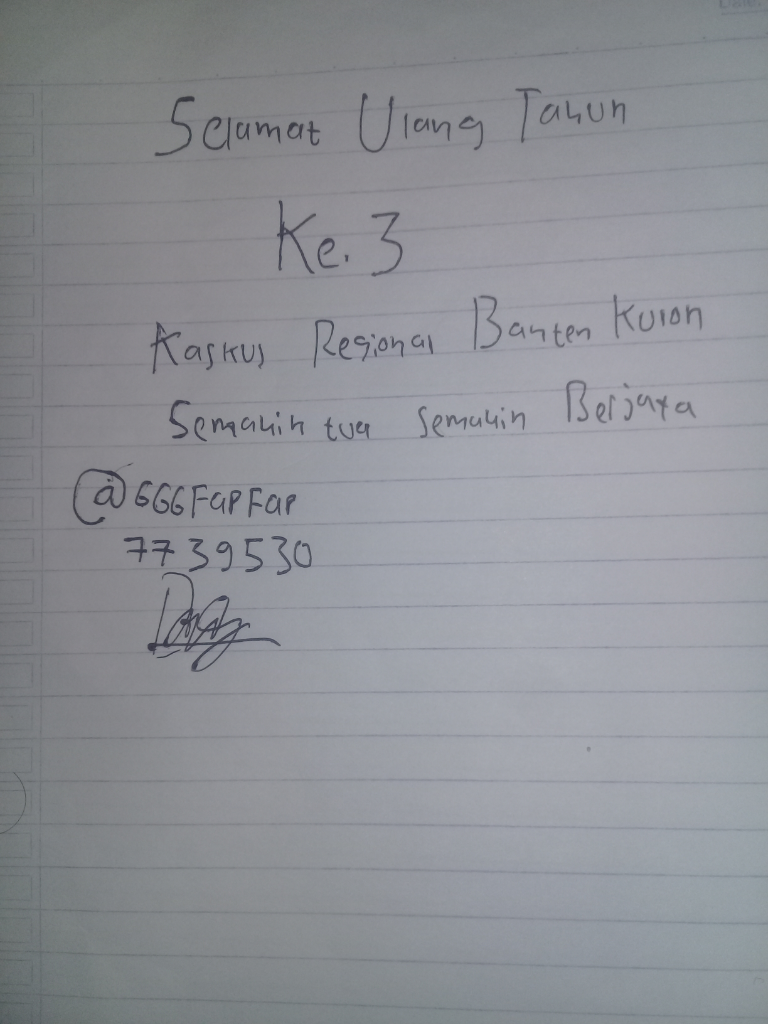 Selamat Ulang Tahun
Ke. 3
Kaskus Regional Banten Kulon
Semakin tua semakin Berjaya
@666FapFap
7739530